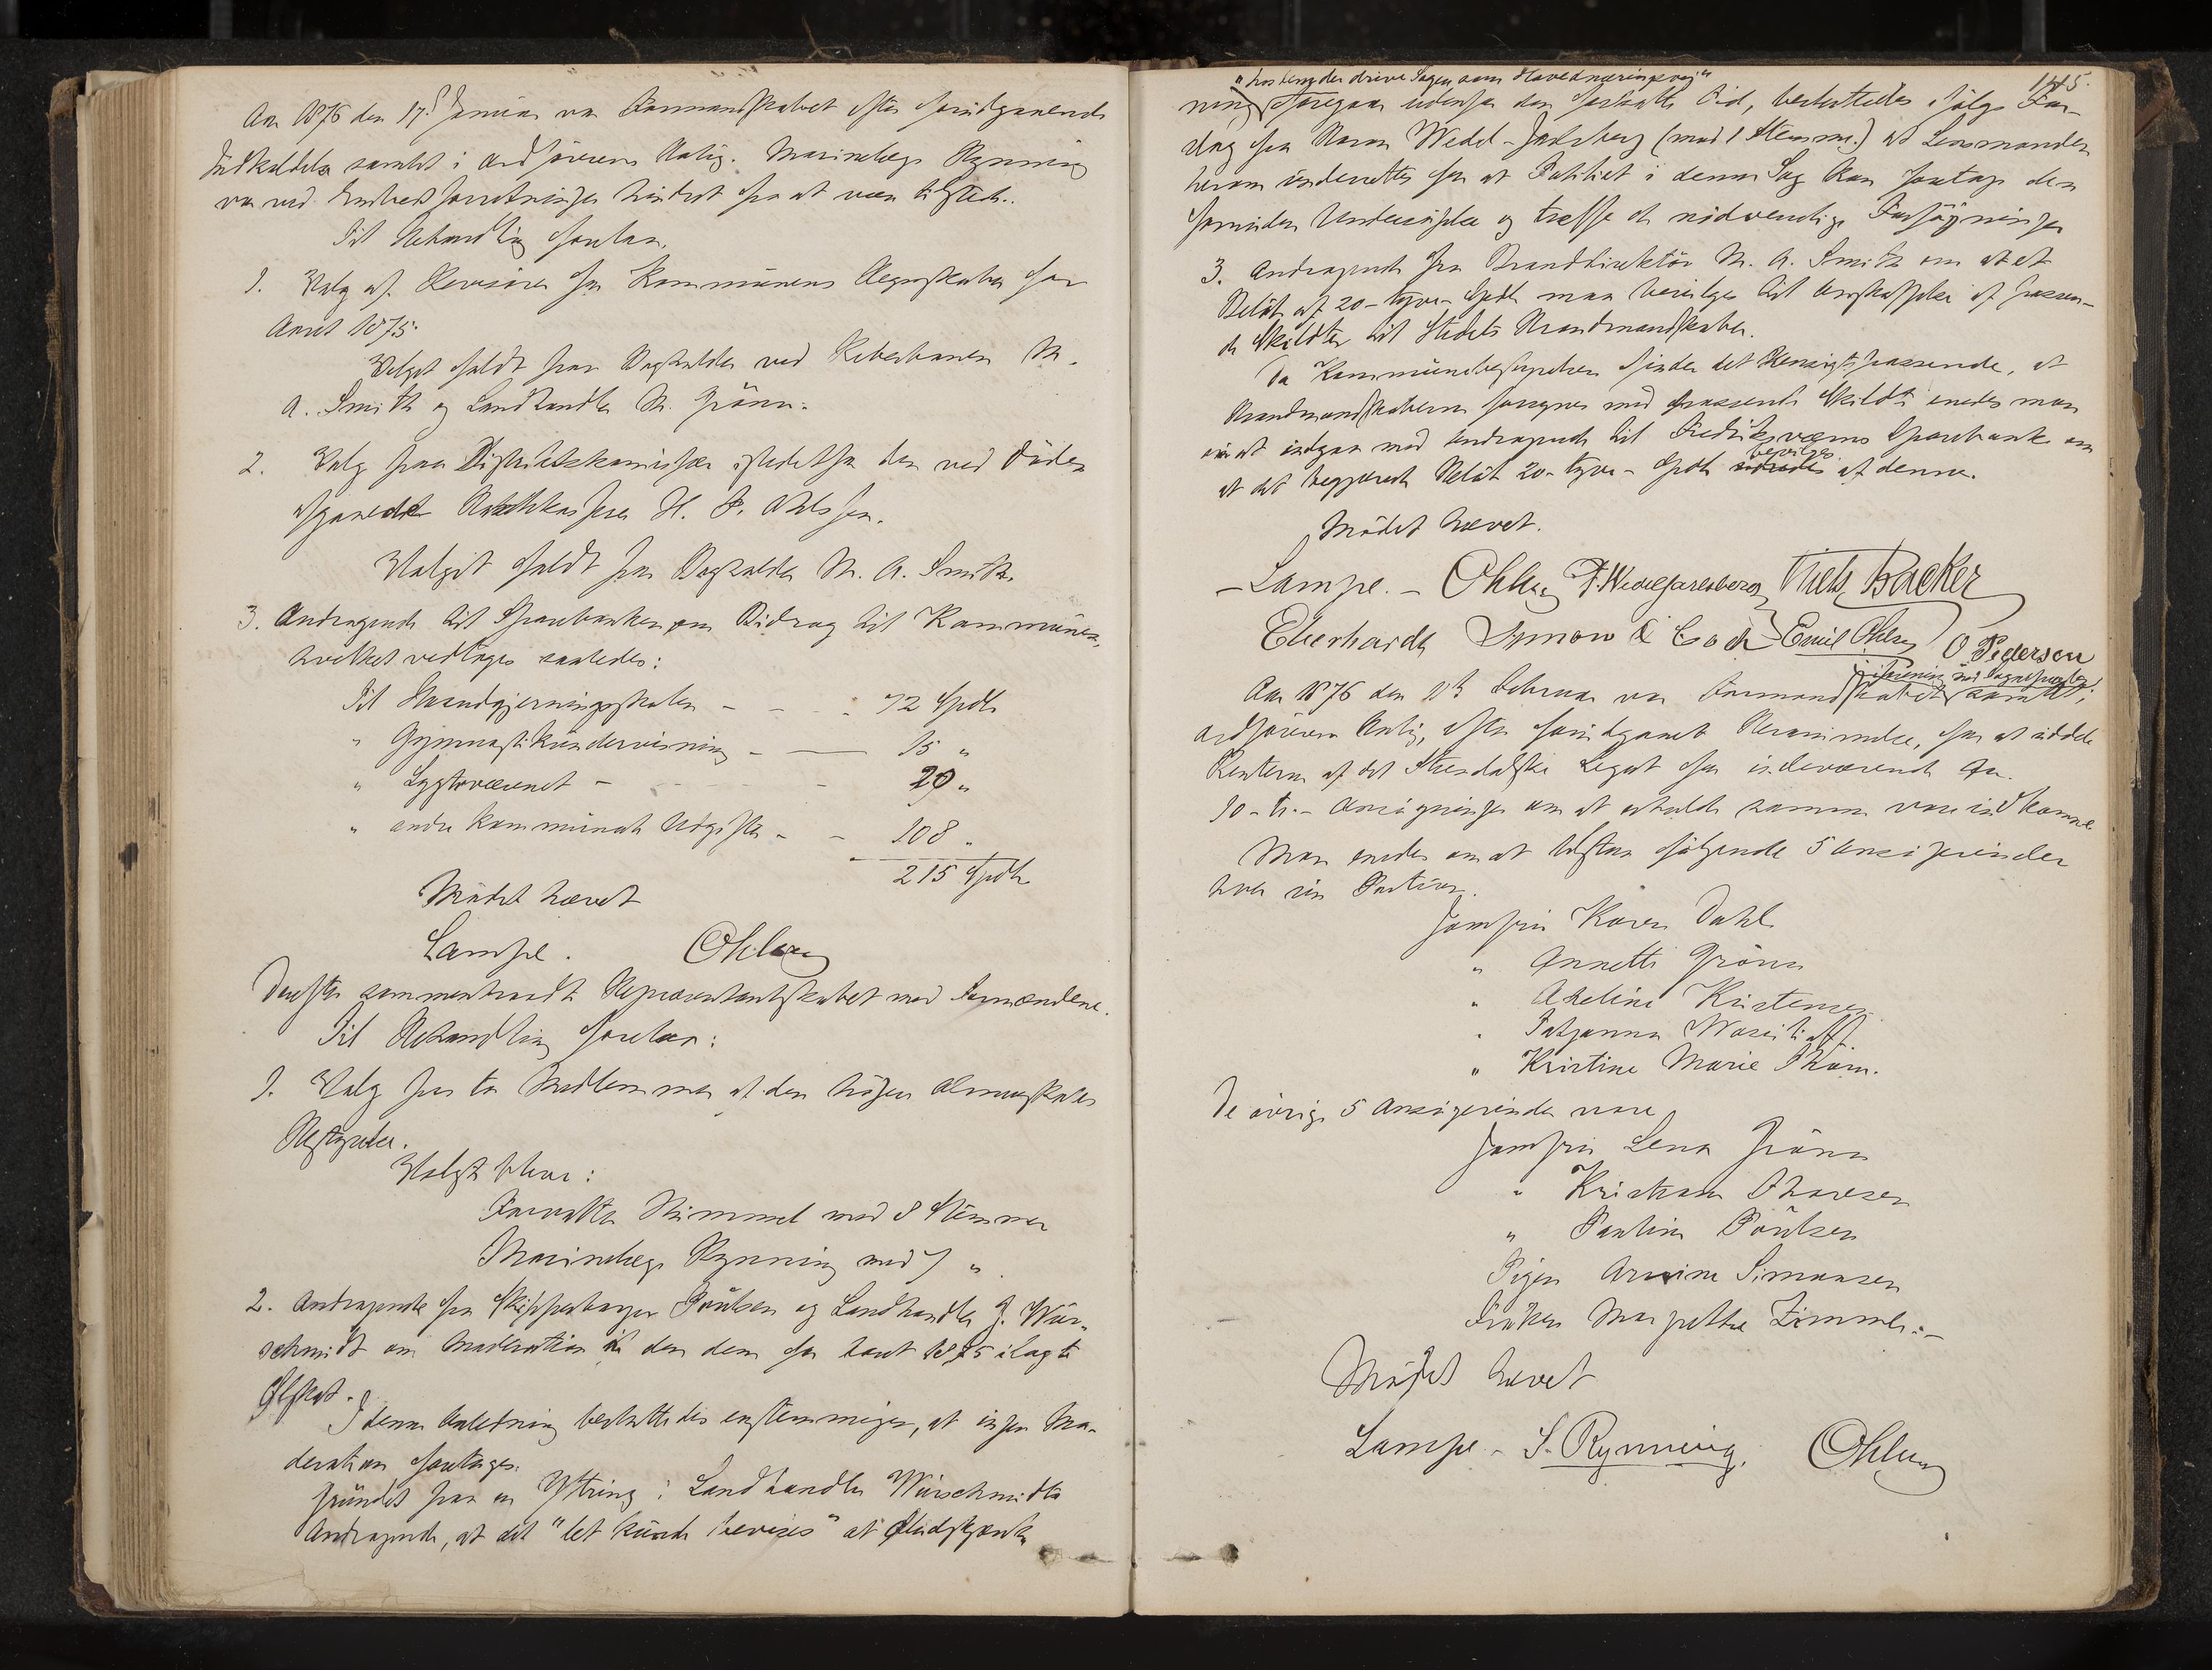 Aar 1876 den 17d Januar var Formandskabet efter foregaaende
Indkaldelse samlet i Ordförerens Bolig. Marinelæge Rynning
var ved Embedsforretninger hindret fra at være tilstede.
Til Behandling foretoges
1. Valg af Revisorer for Kommunens Regnskaber for
Aaret 1875.
Valget faldt paa Bogholder ved M.
A. Smith og Landhandler M. Grönn.
2. Valg paa Distriktskommissær istedetfor den ved Döden
afgaaede H. P. Ohlsen.
Valget faldt paa Bogholder M. A. Smith.
3. Andragende til Sparebanken om Bidrag til Kommunen,
hvilket vedtoges saaledes:
Til Haandgjerningsskolen - - - 72 Spdlr
" Gymnastikundervisning - — 15 "
" Lygtevæsenet - - - - 20 "
" andre kommunale Udgifter - - 108 "
215 Spdlr
Mödet hævet
Lampe. Ohlsen
Derefter sammentraadte Repræsentantskabet med Formændene.
Til Behandling foretoges:
1. Valg paa to Medlemmer af den höiere Almueskoles
Bestyrelse.
Valgte bleve:
Forvalter Himmel med 8 Stemmer
Marinelæge Rynning med 7 "
2. Andragende fra Skipperborger Poulsen og Landhandler J. Wür-
schmidt om Moderation i den dem for Aaret 1875 ilagte
I denne Anledning besluttedes enstemmigen, at ingen Mo-
deration foretages.
Grundet paa en Ytring i Landhandler Würschmidts
Andragende, at det "let kunde bevises" at
145.
"hos Leng der drive Sagen som Hovednæringsvei"
ning foregaar udenfor den fastsatte Tid, besluttedes ifölge For-
slag fra Baron Wedel-Jarlsberg (mod 1 Stemme) at Lensmanden
herom underrettes for at Politiet i denne Sag kan foretage den
fornödne Undersögelse og træffe de nödvendige Forföininger
3. Andragende fra Branddirektör M. A. Smith om at et
Belöb af 20 - tyve - Spdlr maa bevilges til Anskaffelse af passen-
de Skildter til Stedets Brandmandskaber.
Da Kommunebestyrelsen finder det Hensigtspassende, at
Brandmandskaberne forsynes med passende Skildte enedes man
om at indgaa med Andragende til Fredriksværns Sparebank om
at det begjærede Belöb 20 - tyve - Spdlr bevilges af denne.
Mödet hævet.
- Lampe. - Ohlsen F. Wedel Jarlsberg Niels Backer
Eberhardt Symon & Cock Emil Ohlsen O Pedersen
Aar 1876 den 11te Februar var Formandskabet i Forening med Sognepresten samlet i
Ordförerens Bolig, efter foregaaet Berammelse, for at uddele
Renterne af det Legat for indeværende Aar.
10 - ti - Ansögninger om at erholde samme vare indkomne
Man enedes om at tilstaa fölgende 5 Ansögerinder
hver sin Portion.
Jomfru Karen Dahl
" Annette Grönn
" Abeline Kristensen
" Tatjanna
" Kristine Marie Thom.
De övrige 5 Ansögerinder vare
Jomfru Lena Grönn
" Kristiane Thoresen
" Pauline Poulsen
Pigen Simonsen
Fröken Margrethe Zimmer. -
Mödet hævet
Lampe - S. Rynning. Ohlsen